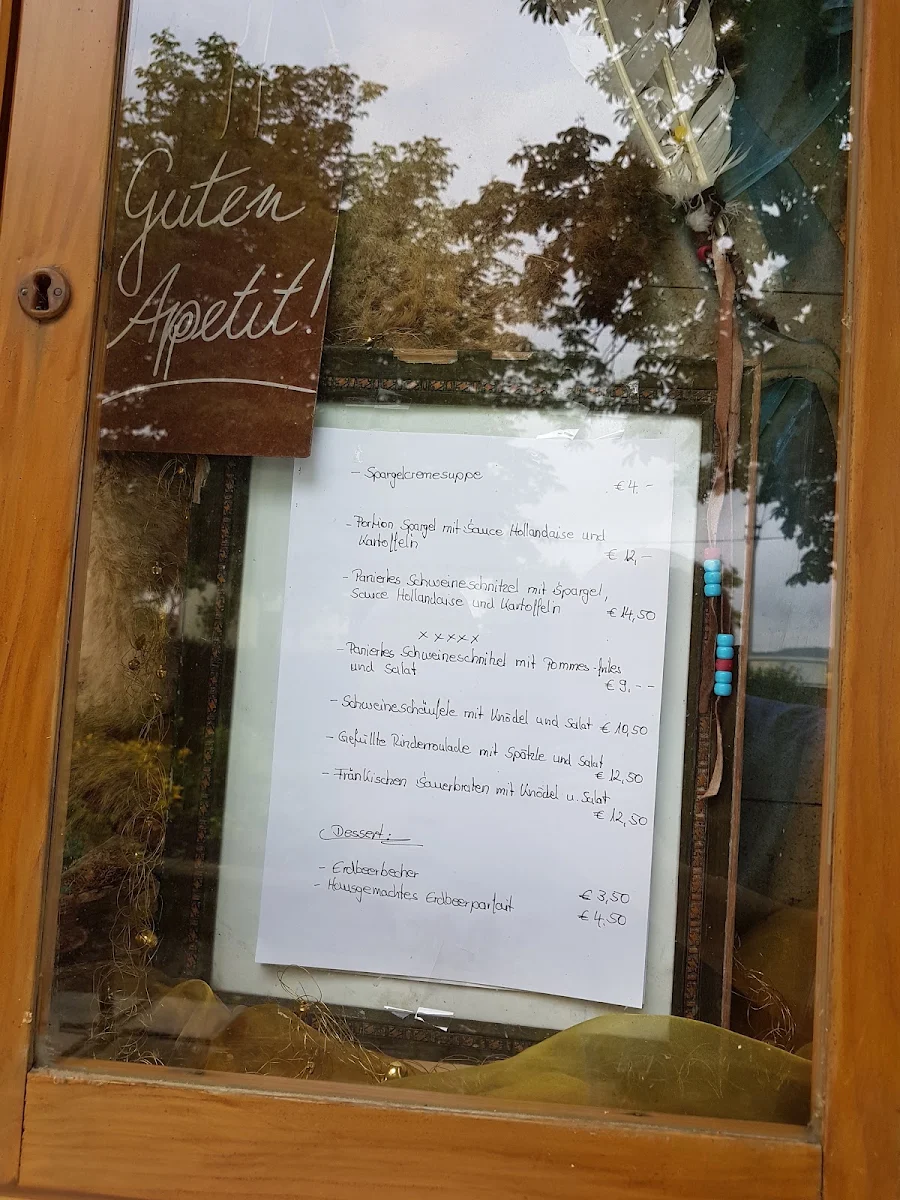 Guten
Appetit!
- Spargelcremesuppe € 4.-
- Portion Spargel mit Sauce Hollandaise und
Kartoffeln € 12,-
- Paniertes Schweineschnitzel mit Spargel,
Sauce Hollandaise und Kartoffeln € 14,50
x x x x x
- Paniertes Schweineschnitzel mit Pommes-frites
und Salat € 9.--
- Schweineschäufele mit Knödel und Salat € 10,50
- Gefüllte Rinderroulade mit Spätzle und Salat
€ 12,50
- Fränkischen Sauerbraten mit Knödel u. Salat
€ 12,50
Dessert:
- Erdbeerbecher € 3,50
- Hausgemachtes Erdbeerparfait € 4,50